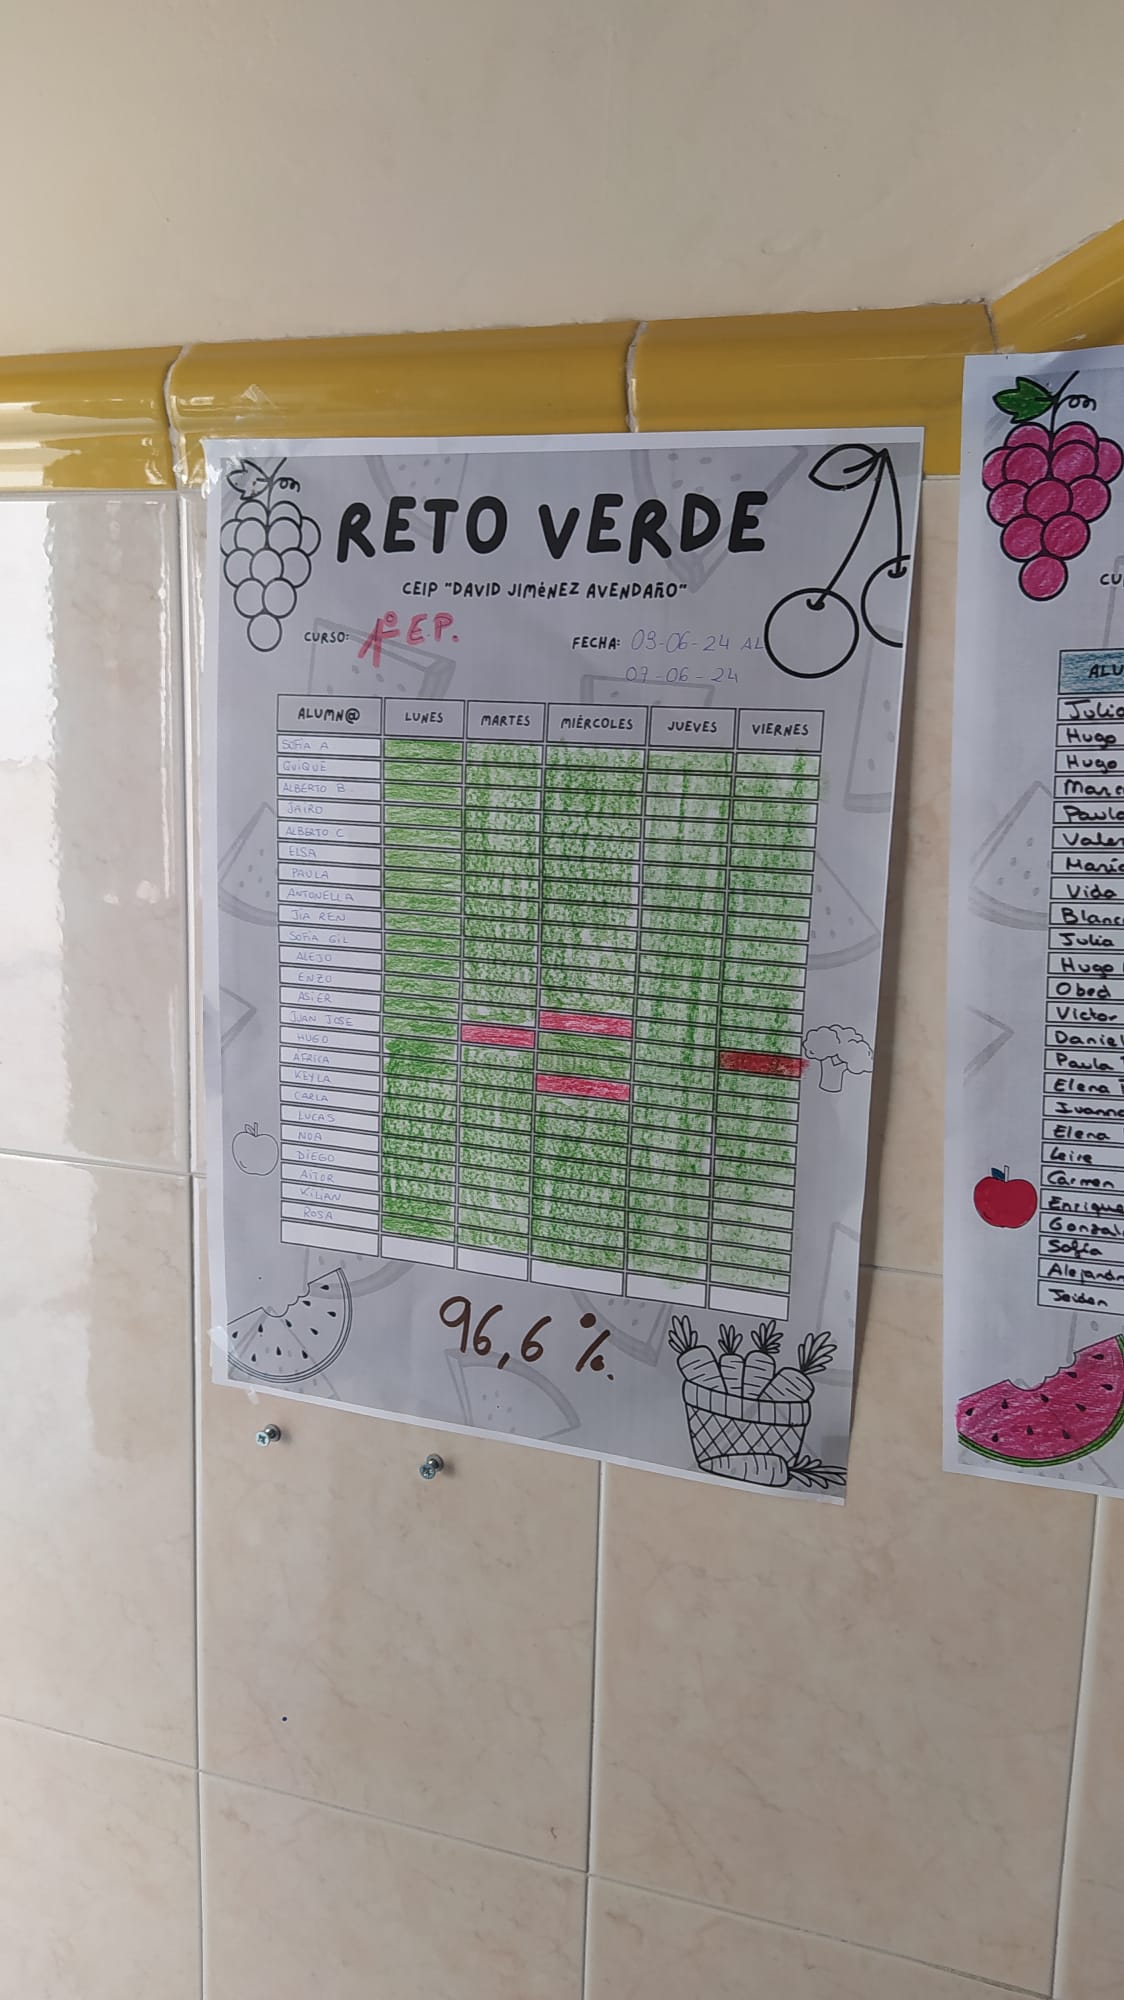 RETO VERDE
CEIP "DAVID JIMÉNEZ AVENDAÑO"
CURSO: 1º E.P.
FECHA: 03-06-24 AL
07-06-24
ALUMN@ LUNES MARTES MIÉRCOLES JUEVES VIERNES
SOFÍA A
QUIQUE
ALBERTO B.
JAIRO
ALBERTO C
ELSA
PAULA
ANTONELLA
JIA REN
SOFÍA GIL
ALEJO
ENZO
ASIER
JUAN JOSE
HUGO
AFRICA
KEYLA
CARLA
LUCAS
NOA
DIEGO
AITOR
KILIAN
ROSA
96,6 %.
CU
ALU
Julia
Hugo
Hugo
Marc
Paula
Valer
María
Vida
Blanc
Julia
Hugo
Obed
Victor
Daniel
Paula
Elena
Ivanna
Elena
Leire
Carmen
Enrique
Gonzal
Sofía
Alejandr
Jeiden